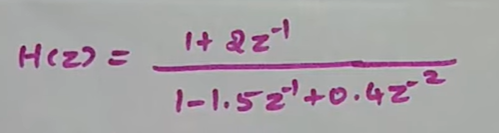 H(z) = 1 + 2z⁻¹ / 1 - 1.5z⁻¹ + 0.4z⁻²